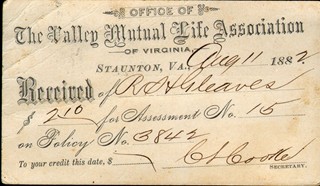 OFFICE OF
The Valley Mutual Life Association
OF VIRGINIA.
STAUNTON, VA. Aug 11 1882
Received of R H Gleaves
$ 2 10 for Assessment No. 15
on Policy No. 3842
To your credit this date, $
SECRETARY.